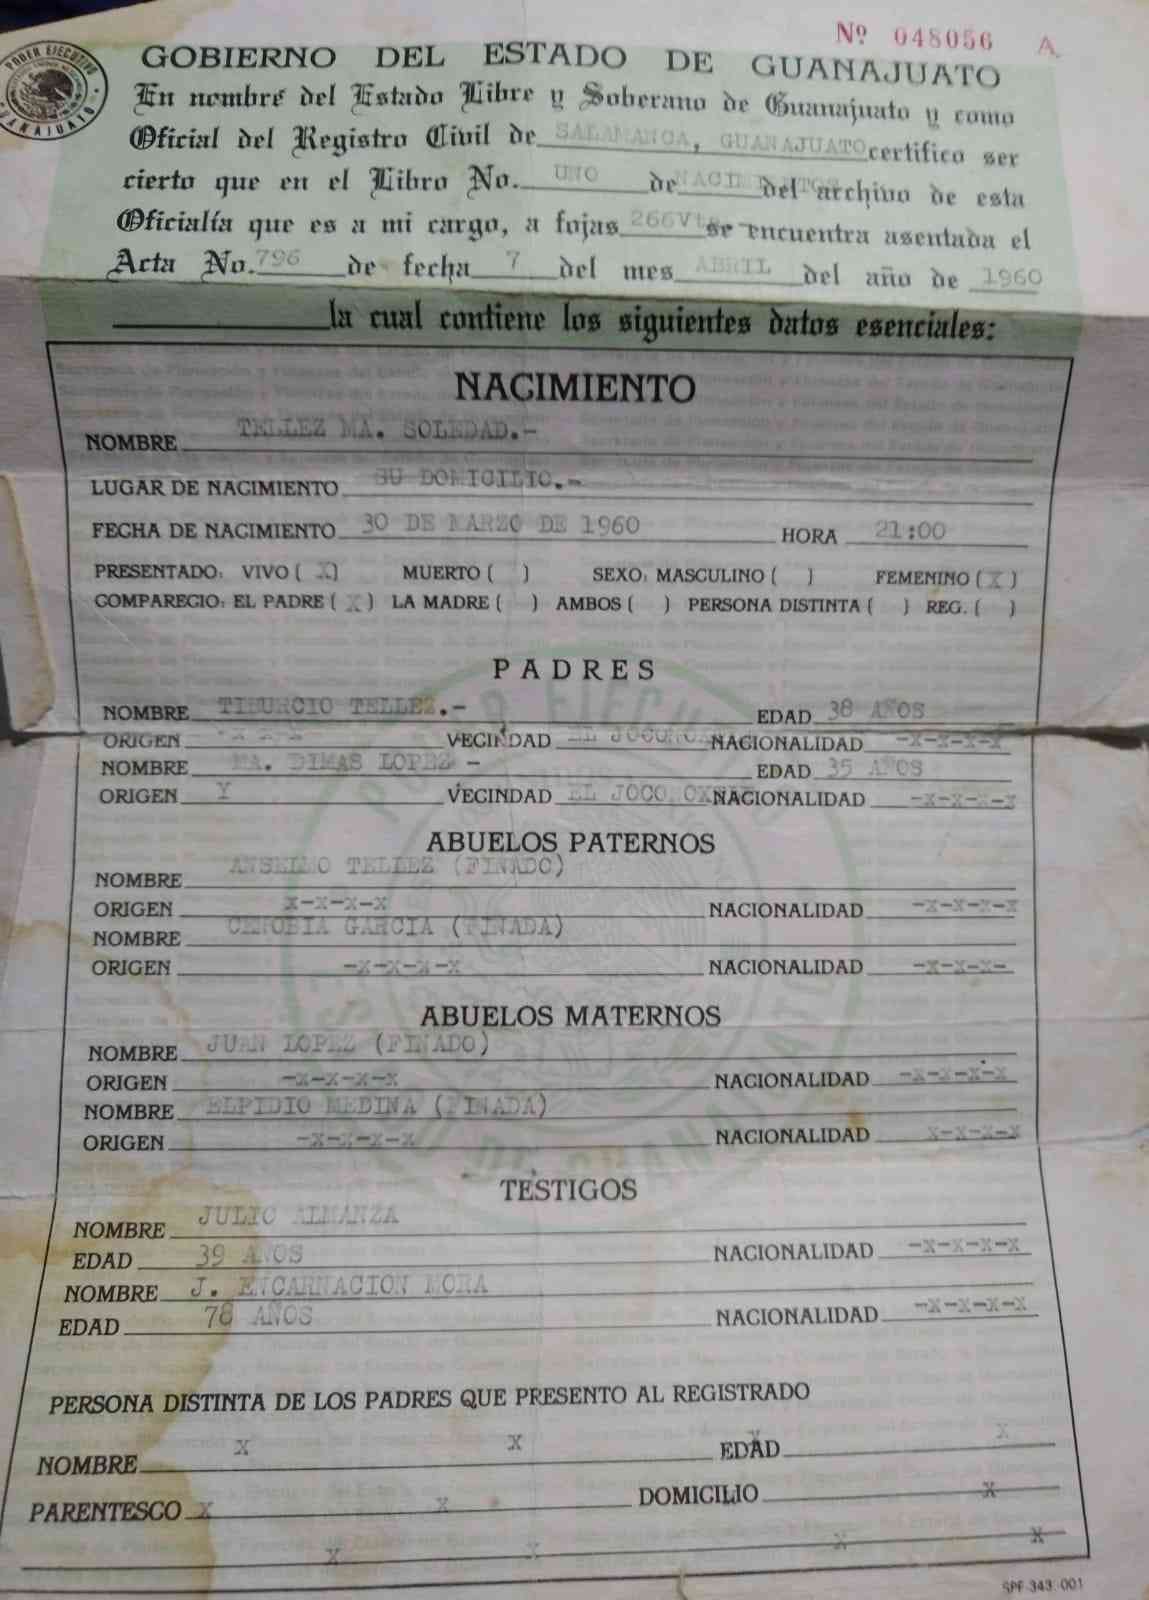 Nº 048056 A
PODER EJECUTIVO
GUANAJUATO
GOBIERNO DEL ESTADO DE GUANAJUATO
En nombre del Estado Libre y Soberano de Guanajuato y como
Oficial del Registro Civil de SALAMANCA, GUANAJUATO certifico ser
cierto que en el Libro No. UNO de NACIMIENTOS del archivo de esta
Oficialía que es a mi cargo, a fojas 266Vta se encuentra asentada el
Acta No. 796 de fecha 7 del mes ABRIL del año de 1960
la cual contiene los siguientes datos esenciales:
NACIMIENTO
NOMBRE TELLEZ MA. SOLEDAD.-
LUGAR DE NACIMIENTO SU DOMICILIO.-
FECHA DE NACIMIENTO 30 DE MARZO DE 1960 HORA 21:00
PRESENTADO: VIVO ( X ) MUERTO ( ) SEXO: MASCULINO ( ) FEMENINO ( X )
COMPARECIO: EL PADRE ( X ) LA MADRE ( ) AMBOS ( ) PERSONA DISTINTA ( ) REG. ( )
PADRES
NOMBRE TIBURCIO TELLEZ.- EDAD 38 AÑOS
ORIGEN -X X X VECINDAD EL NACIONALIDAD -X-X-X-X
NOMBRE MA. DIMAS LOPEZ - EDAD 35 AÑOS
ORIGEN Y VECINDAD EL NACIONALIDAD -X-X-X-X
ABUELOS PATERNOS
NOMBRE ANSELMO TELLEZ (FINADO)
ORIGEN X-X-X-X NACIONALIDAD -X-X-X-X
NOMBRE CENOBIA GARCIA (FINADA)
ORIGEN -X-X-X-X NACIONALIDAD -X-X-X-
ABUELOS MATERNOS
NOMBRE JUAN LOPEZ (FINADO)
ORIGEN -X-X-X-X NACIONALIDAD -X-X-X-X
NOMBRE ELPIDIO MEDINA (FINADA)
ORIGEN -X-X-X-X NACIONALIDAD X-X-X-X
TESTIGOS
NOMBRE JULIO ALMANZA
EDAD 39 AÑOS NACIONALIDAD -X-X-X-X
NOMBRE J. ENCARNACION MORA
EDAD 78 AÑOS NACIONALIDAD -X-X-X-X
PERSONA DISTINTA DE LOS PADRES QUE PRESENTO AL REGISTRADO
NOMBRE X X EDAD X X
PARENTESCO X X DOMICILIO X
X X X X
SPF-343 001